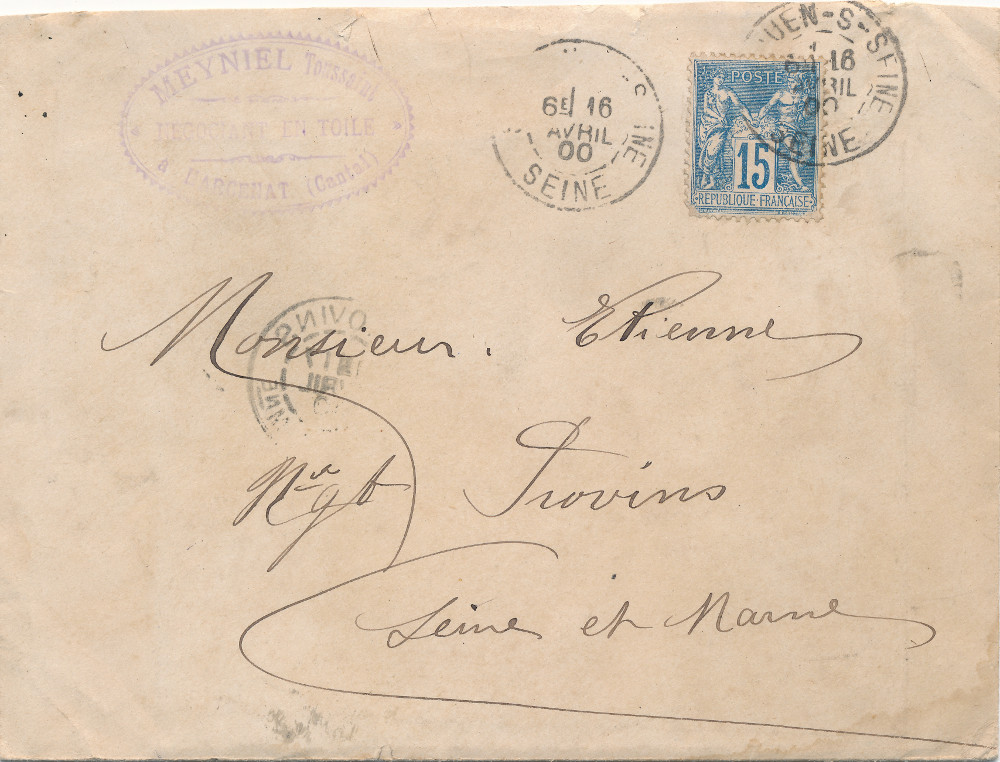 MEYNIEL Toussaint
NEGOCIANT EN TOILE
à LARCENAT (Cantal)
6E 16
AVRIL
00
SEINE
OUEN-S-SEINE
16
AVRIL
00
SEINE
POSTE
15
REPUBLIQUE FRANÇAISE
PROVINS
Monsieur. Etienne
Ngt Provins
Seine et Marne